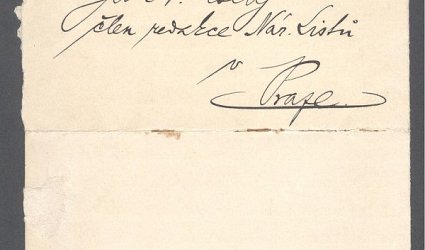 člen redakce Nár. Listů
v
Praze